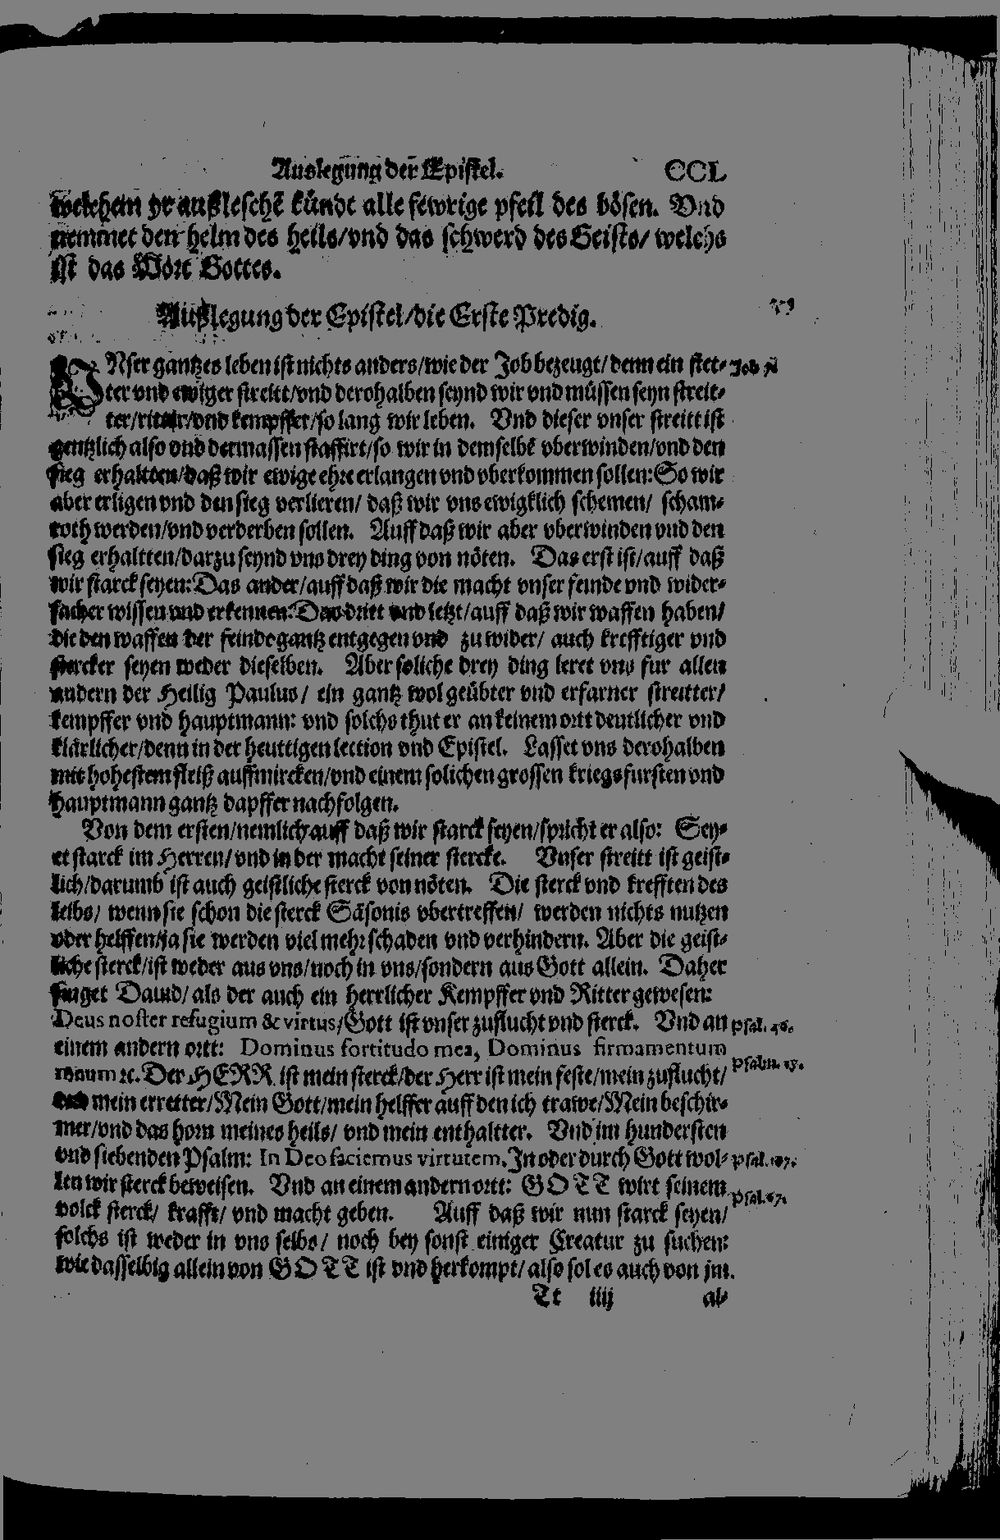 Auslegung der Epistel. CCL
welchem yr außleschẽ kündt alle fewrige pfeil des bösen. Vnd
nemmet den helm des heils/vnd das schwerd des Geists/ welchs
ist das Wort Gottes.
Außlegung der Epistel/die Erste Predig.
VNser gantzes leben ist nichts anders/wie der Job bezeugt/denn ein stet- Job
ter vnd ewiger streitt/vnd derohalben seynd wir vnd müssen seyn streit-
ter/ritter/vnd kempffer/so lang wir leben. Vnd dieser vnser streitt ist
gentzlich also vnd dermassen staffirt/so wir in demselbẽ vberwinden/vnd den
sieg erhaltten/daß wir ewige ehre erlangen vnd vberkommen sollen: So wir
aber erligen vnd den sieg verlieren/ daß wir vns ewigklich schemen/ scham-
roth werden/vnd verderben sollen. Auff daß wir aber vberwinden vnd den
sieg erhaltten/darzu seynd vns drey ding von nöten. Das erst ist/auff daß
wir starck seyen: Das ander/auff daß wir die macht vnser feinde vnd wider-
sacher wissen vnd erkennen: Das dritt vnd letzt/auff daß wir waffen haben/
die den waffen der feinde gantz entgegen vnd zu wider/ auch krefftiger vnd
stercker seyen weder dieselben. Aber soliche drey ding leret vns fur allen
andern der Heilig Paulus/ ein gantz wol geübter vnd erfarner streitter/
kempffer vnd hauptmann: vnd solchs thut er an keinem ortt deutlicher vnd
klärlicher/denn in der heuttigen lection vnd Epistel. Lasset vns derohalben
mit hohestem fleiß auffmircken/vnd einem solichen grossen kriegsfursten vnd
hauptmann gantz dapffer nachfolgen.
Von dem ersten/nemlich auff daß wir starck seyen/spricht er also: Sey-
et starck im Herren/vnd in der macht seiner stercke. Vnser streitt ist geist-
lich/darumb ist auch geistliche sterck von nöten. Die sterck vnd krefften des
leibs/ wenn sie schon die sterck Sãsonis vbertreffen/ werden nichts nutzen
oder helffen/ja sie werden viel mehr schaden vnd verhindern. Aber die geist-
liche sterck/ist weder aus vns/noch in vns/sondern aus Gott allein. Daher
singet Dauid/ als der auch ein herrlicher Kempffer vnd Ritter gewesen:
Deus noster refugium & virtus/Gott ist vnser zuflucht vnd sterck. Vnd an Psal. 46.
einem andern ortt: Dominus fortitudo mea, Dominus firmamentum
meum ꝛc. Der HERR ist mein sterck/der Herr ist mein feste/mein zuflucht/ Psalm. 17.
vnd mein erretter/Mein Gott/mein helffer auff den ich trawe/Mein beschir-
mer/vnd das horn meines heils/ vnd mein enthaltter. Vnd im hundersten
vnd siebenden Psalm: In Deo faciemus virtutem. In oder durch Gott wol- Psal. 107.
len wir sterck beweisen. Vnd an einem andern ortt: GOTT wirt seinem Psal. 67.
volck sterck/ krafft/ vnd macht geben. Auff daß wir nun starck seyen/
solchs ist weder in vns selbs/ noch bey sonst einiger Creatur zu suchen:
wie dasselbig allein von GOTT ist vnd herkompt/also sol es auch von jm.
Tt iiij al-